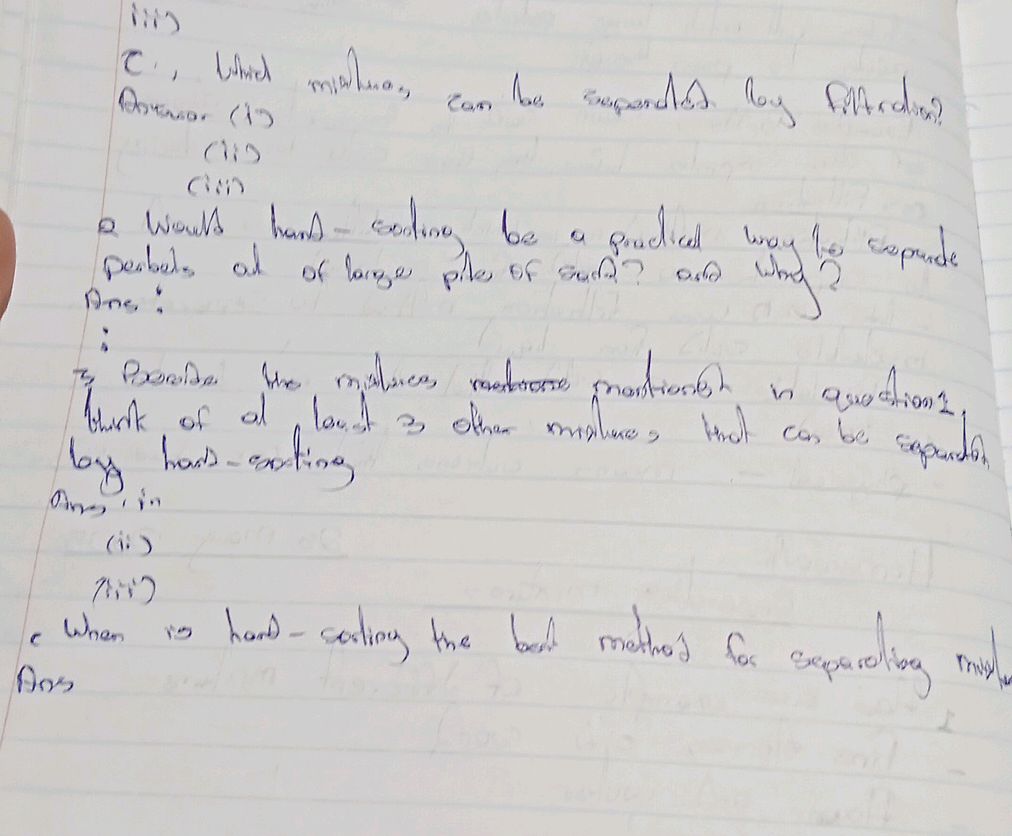 iii)
C., Which mixtures can be separated by filtration?
Answer (i)
(ii)
(iii)
2 Would hand-sorting be a practical way to separate
of large pile of sand? and why?
Ans:
:
3 the mixtures mentioned in question 1,
think of at least 3 other mixtures that can be separated
by hand-sorting
Ans, in
(ii)
iii)
c When is hand-sorting the best method for separating
Ans